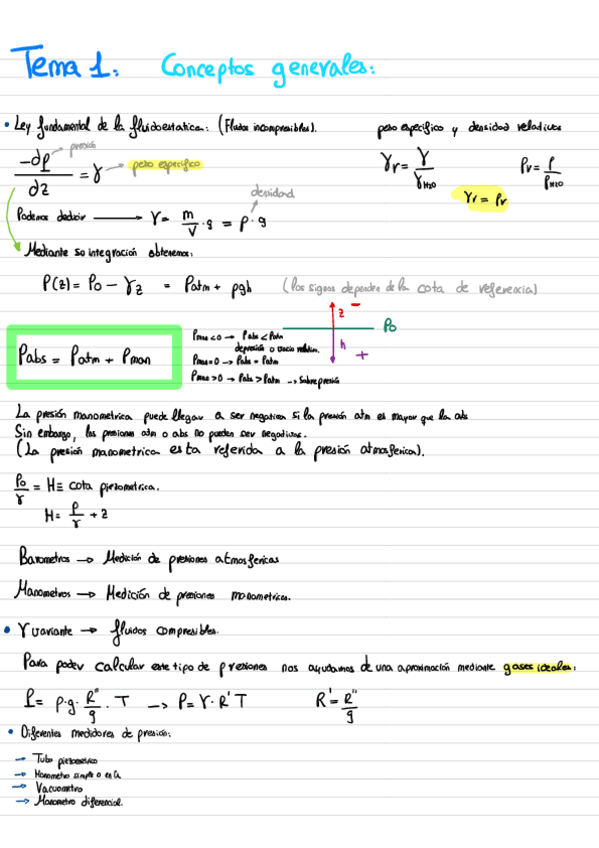 Tema 1: Conceptos generales:
• Ley fundamental de la fluidoestatica: (Fluidos incompresibles). peso especifico y densidad relativos
-dp/dz = γ presión peso especifico γr = γ/γH2O ρr = ρ/ρH2O
γr = ρr
Podemos deducir → γ = m/V · g = ρ · g densidad
Mediante su integración obtenemos:
P(z) = P0 - γz = Patm + ρgh (los signos dependen de la cota de referencia)
z −
P0
h +
Pabs = Patm + Pman
Pman < 0 → Pabs < Patm
depresión o vacio relativo.
Pman = 0 → Pabs = Patm
Pman > 0 → Pabs > Patm → Sobrepresión
La presión manometrica puede llegar a ser negativa si la presión atm es mayor que la abs
Sin embargo, las presiones atm o abs no pueden ser negativas.
(La presión manometrica esta referida a la presión atmosferica).
P0/γ = H ≡ cota piezometrica.
H = P/γ + z
Barometros → Medición de presiones atmosfericas
Manometros → Medición de presiones manometricas.
• γ variante → fluidos compresibles.
Para poder calcular este tipo de presiones nos ayudamos de una aproximación mediante gases ideales:
P = ρ·g· R''/g · T → P = γ · R' T R' = R''/g
• Diferentes medidores de presión:
→ Tubo piezometrico
→ Manometro simple o en U.
→ Vacuometro
→ Manometro diferencial.